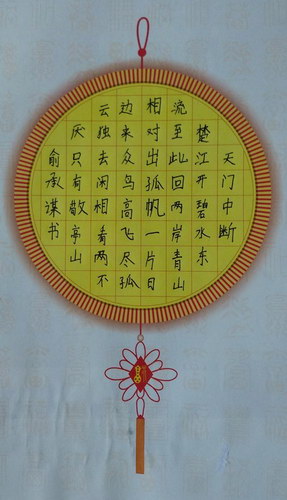 天门中断
楚江开碧水东
流至此回两岸青山
相对出孤帆一片日
边来众鸟高飞尽孤
云独去闲相看两不
厌只有敬亭山
俞承谋书